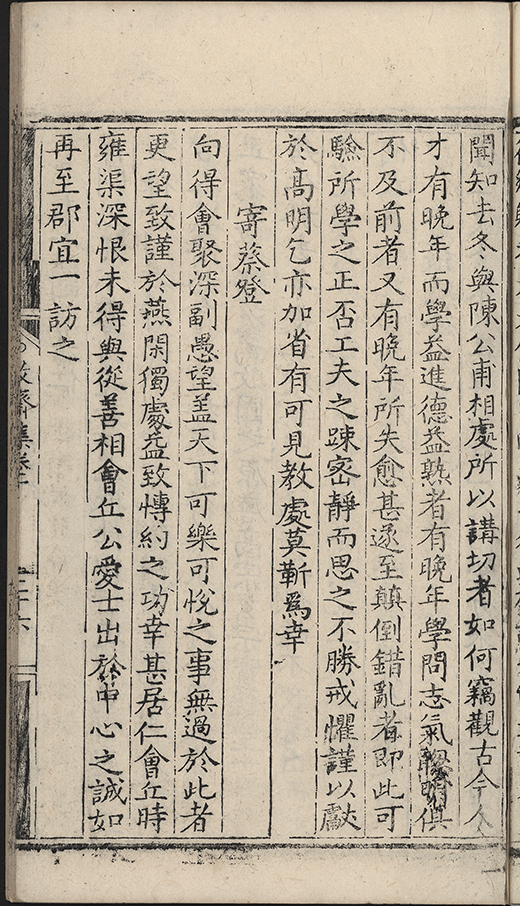 聞知去冬與陳公甫相處所以講切者如何竊觀古今人
才有晚年而學益進德益熟者有晚年學問志氣聰明俱
不及前者又有晚年所失愈甚遂至顛倒錯亂者即此可
驗所學之正否工夫之踈密靜而思之不勝戒懼謹以獻
於高明乞亦加省有可見教處莫靳爲幸
寄蔡登
向得會聚深副愚望盖天下可樂可悅之事無過於此者
更望致謹於燕閑獨處益致慱約之功幸甚居仁會丘時
雍渠深恨未得與從善相會丘公愛士出於中心之誠如
再至郡宜一訪之
敬齋集卷
二十六